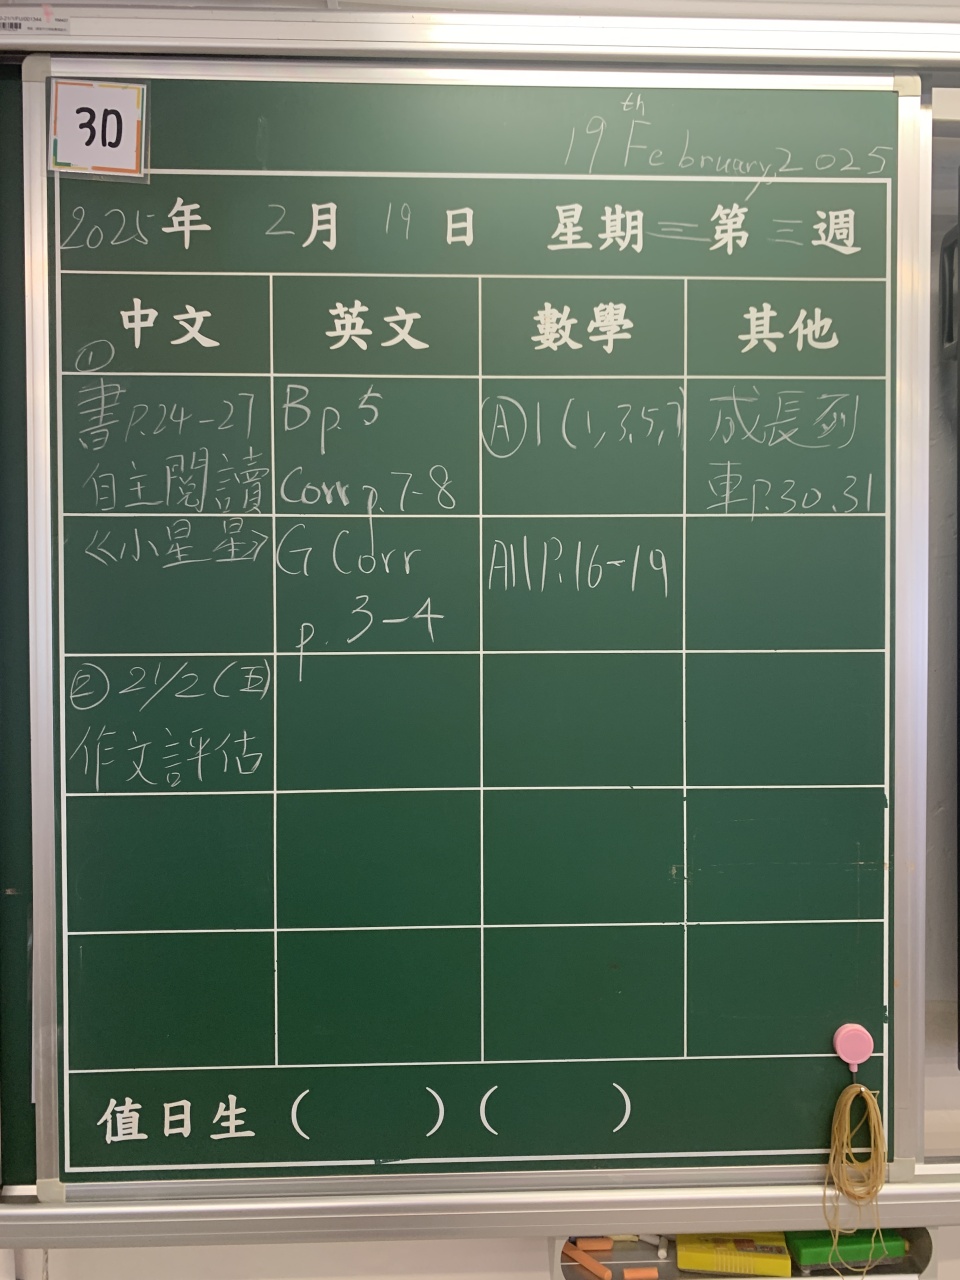 3D
19th February, 2025
2025年 2月 19日 星期三 第三週
中文 英文 數學 其他
①
書P.24-27
自主閱讀
《小星星》
② 21/2(五)
作文評估
B p. 5
Corr p. 7-8
G Corr
p. 3-4
Ⓐ1(1,3,5,7
A11 P.16-19
成長列
車P.30.31
值日生( )( )